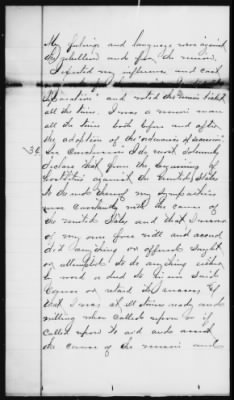 My feelings and language were against
the rebellion and for the union.
I exerted my influence and cast
separation and voted the Union ticket
all the time. I was a union man
all the time both before and after
the adoption of the ordinance of secession
36 In conclusion I do most solemnly
declare that from the beginning of
hostilities against the United States
to the end thereof my sympathies
were constantly with the cause of
the United States and that I never
of my own free will and accord
did anything or offered sought
or attempted to do anything either
by word or deed to injure said
cause or retard its success, &
that I was at all times ready and
willing when called upon or if
called upon to aid and assist
the cause of the union and